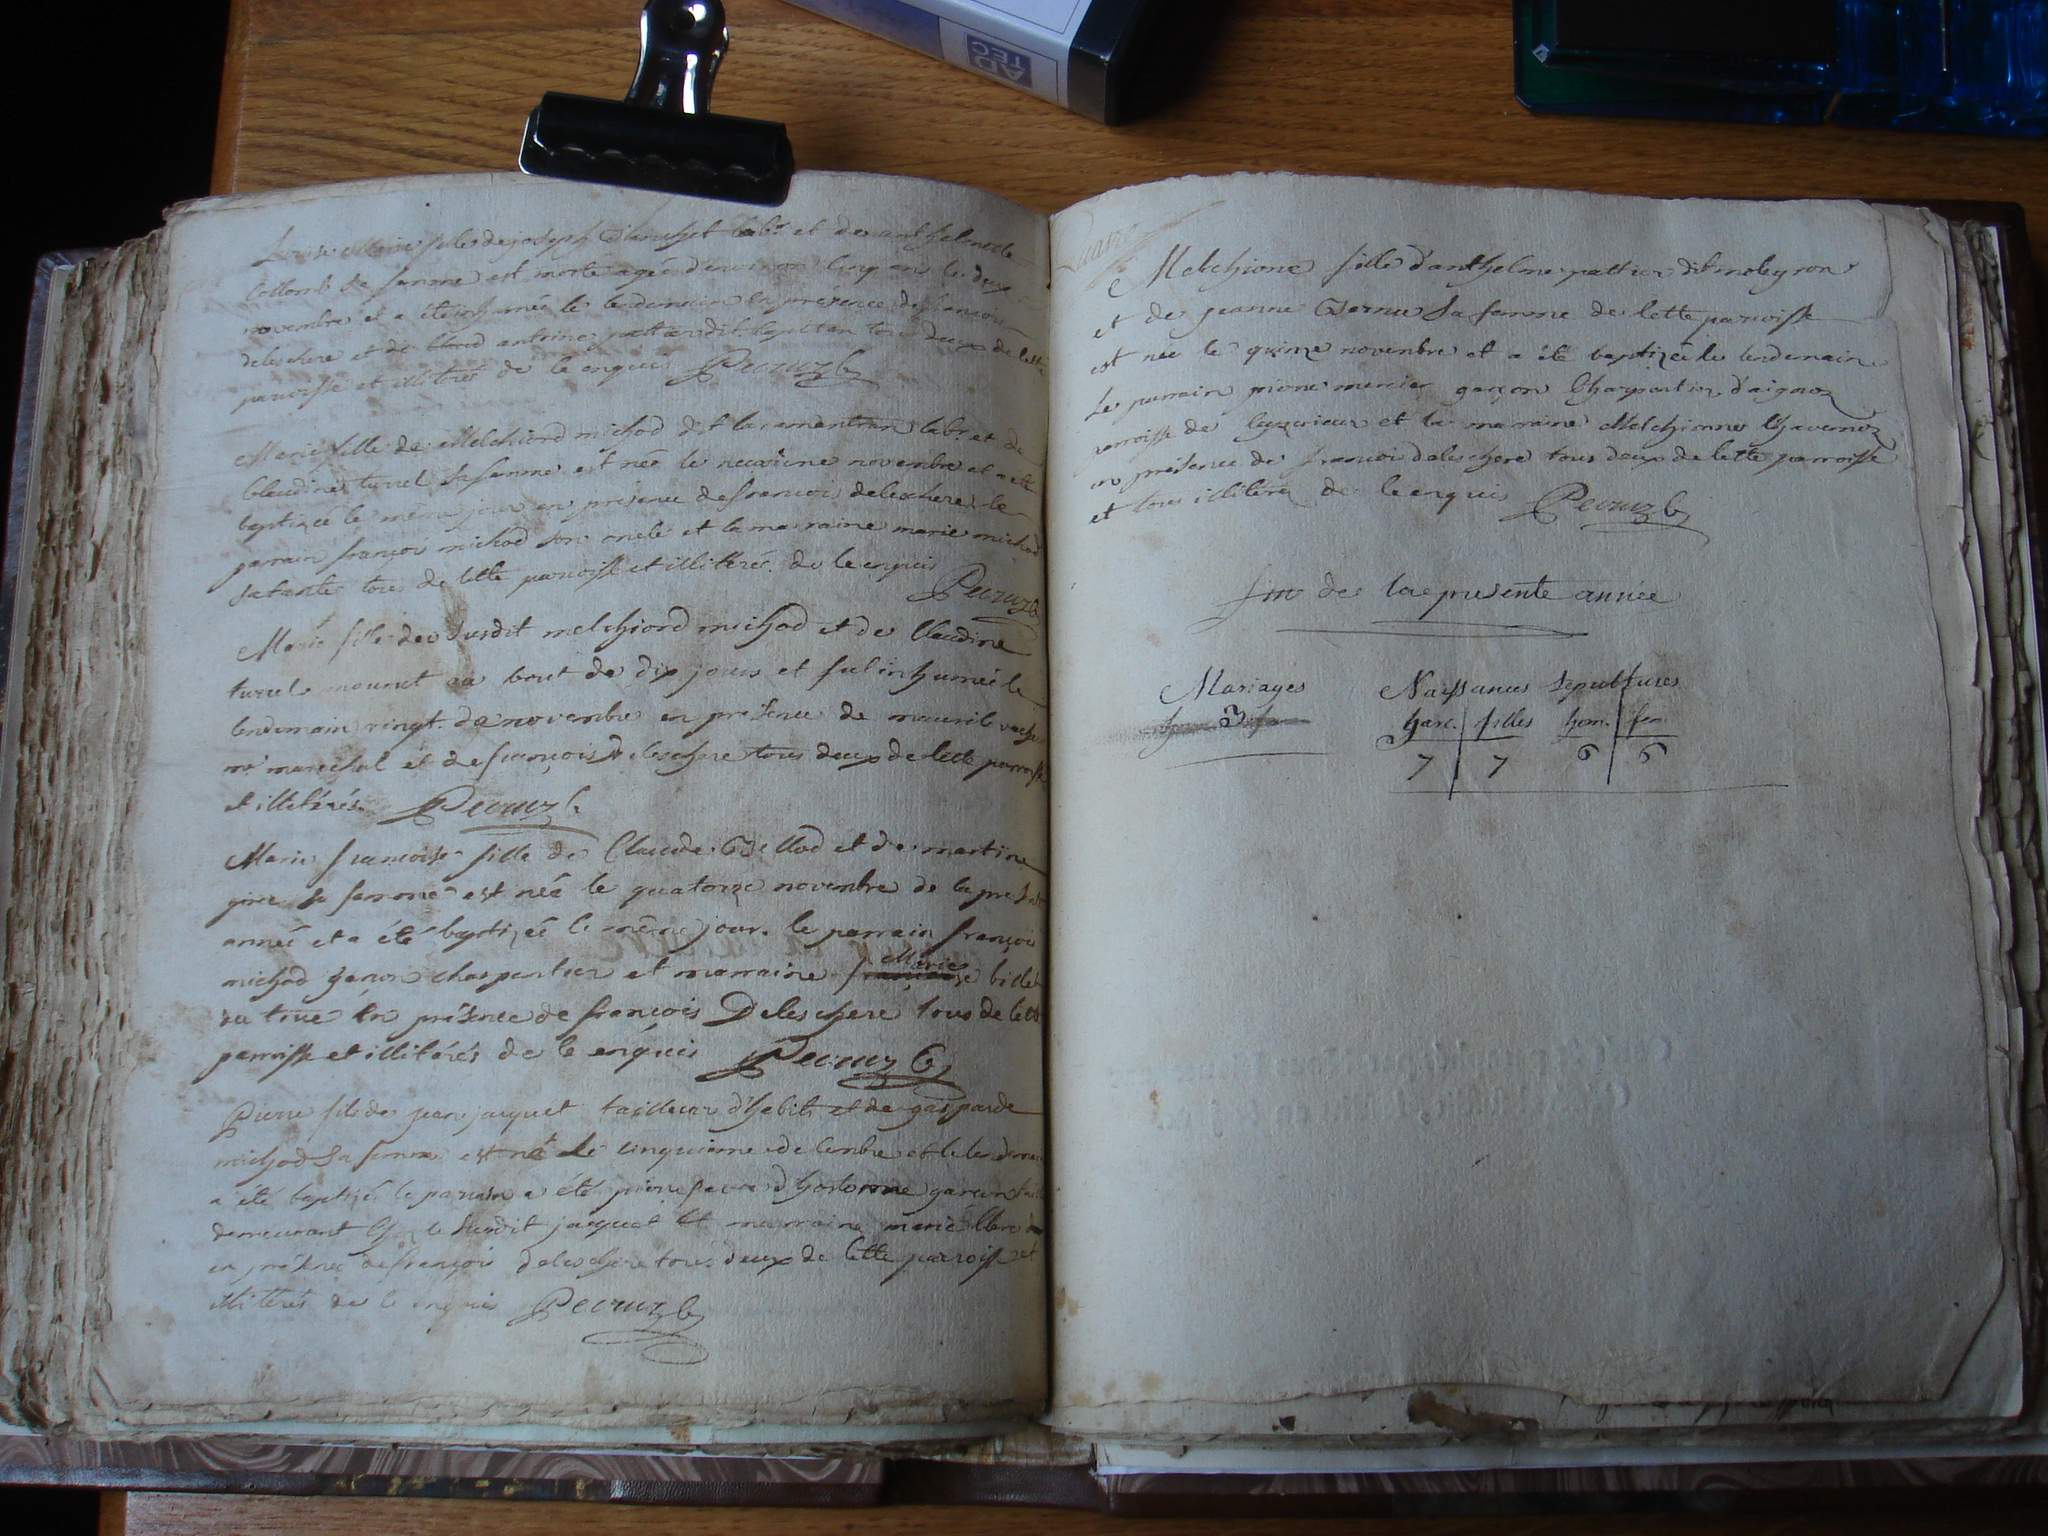 AD
TEC
Louise Marie fille de joseph labr. et de anthelmette
Collomb sa femme est morte agée d'environ cinq ans le deux
novembre et a été inhumée le lendemain en présence de françois
deleschere et de antoine pattier dit tous deux de cette
paroisse et illiterés de ce enquis Pecruz C
Marie fille de Melchiord michod dit labr. et de
Claudine turrel sa femme est née le neuvieme novembre et a été
baptizée le même jour en présence de françois deleschere le
parrain françois michod son oncle et la marraine marie michod
sa tante tous de cette paroisse et illiterés de ce enquis
Pecruz C
Marie fille du susdit melchiord michod et de Claudine
turrel mourut au bout de dix jours et fut inhumée le
lendemain vingt de novembre en présence de
me marechal et de françois deleschere tous deux de cette paroisse
et illiterés Pecruz C
Marie francoise fille de Claude et de martine
sa femme est née le quatorze novembre de la presente
année et a été baptizée le même jour. le parrain françois
michod garcon charpentier et marraine Marie
en présence de françois Deleschere tous de cette
paroisse et illiterés de ce enquis Pecruz C
Pierre fils de jean jacquet tailleur d'habits et de gasparde
michod sa femme est né le cinquieme decembre et le lendemain
a été baptizé le parrain a été pierre garcon
demeurant chez le susdit jacquet et marraine marie
en présence de françois deleschere tous deux de cette paroisse et
illiterés de ce enquis Pecruz C
Melchione fille d'anthelme pattier dit moleyron
et de jeanne sa femme de cette paroisse
est née le quinze novembre et a été baptizée le lendemain
Le parrain pierre mercier garçon Charpentier d'aignoz
parroisse de Ceyzerieux et la marraine Melchionne Chavernoz
en présence de françois deleschere tous deux de cette parroisse
et tous illiterés de ce enquis Pecruz C
fin de la presente année
Mariages Naissances sepultures
3 garc. filles hom. fem
7 7 6 6